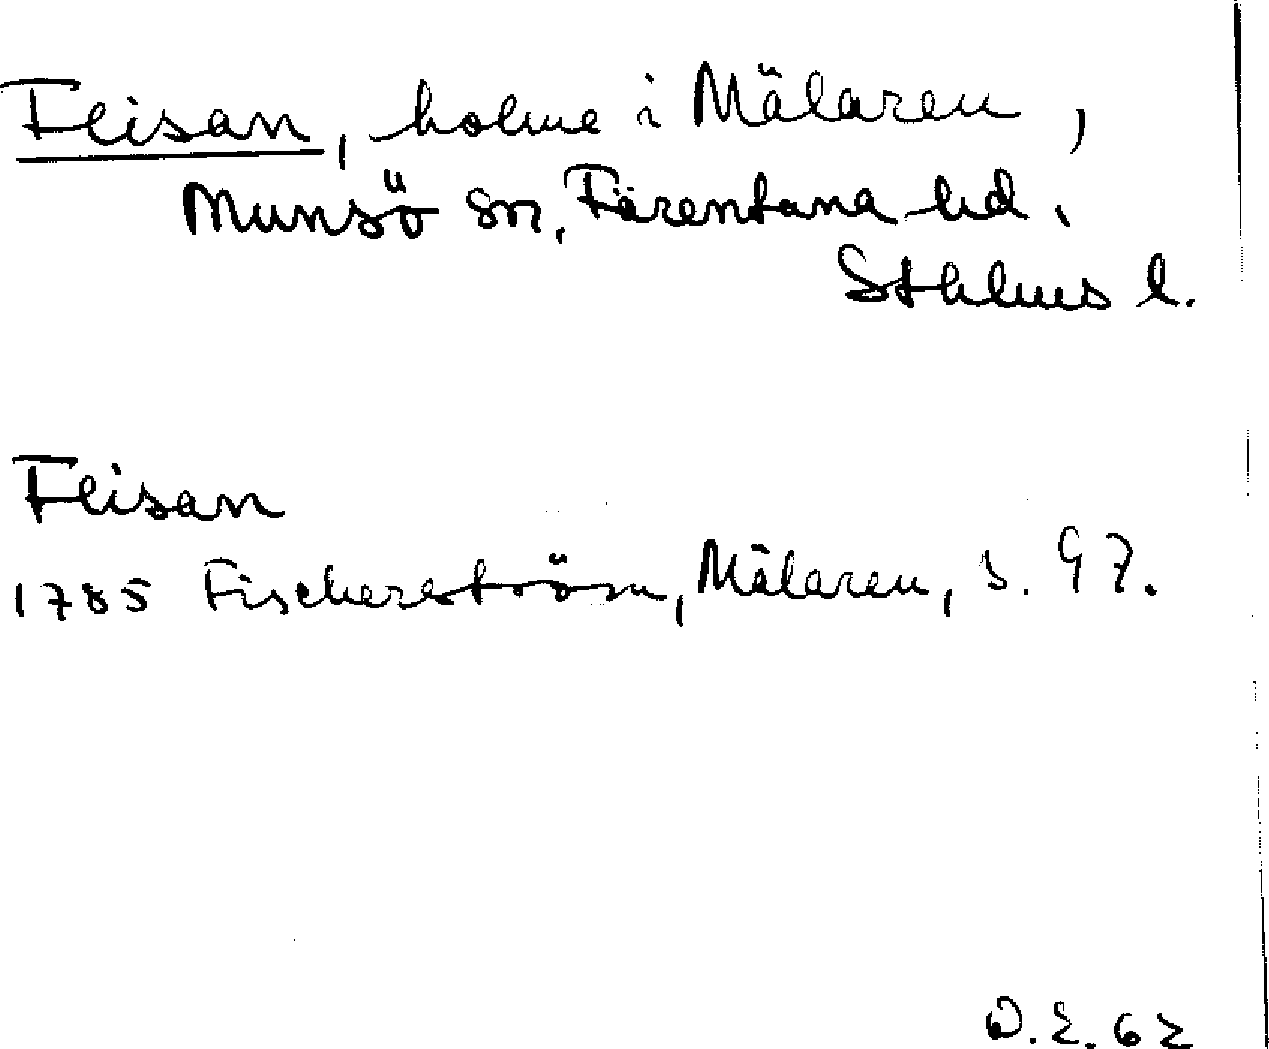 Flisan, holme i Mälaren,
Munsö sn, Färentuna hd.
Sthlms l.
Flisan
1785 Fischerström, Mälaren, s. 97.
O.E. 62